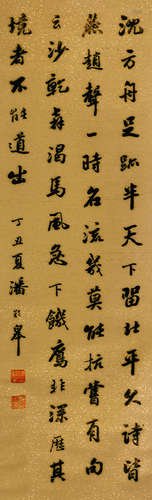 沈方舟足跡半天下留北平久詩皆
燕趙聲一時名流幾莫能抗嘗有句
云沙乾奔渴馬風急下饑鷹非深歷其
境者不能道出
丁丑夏潘齡皋